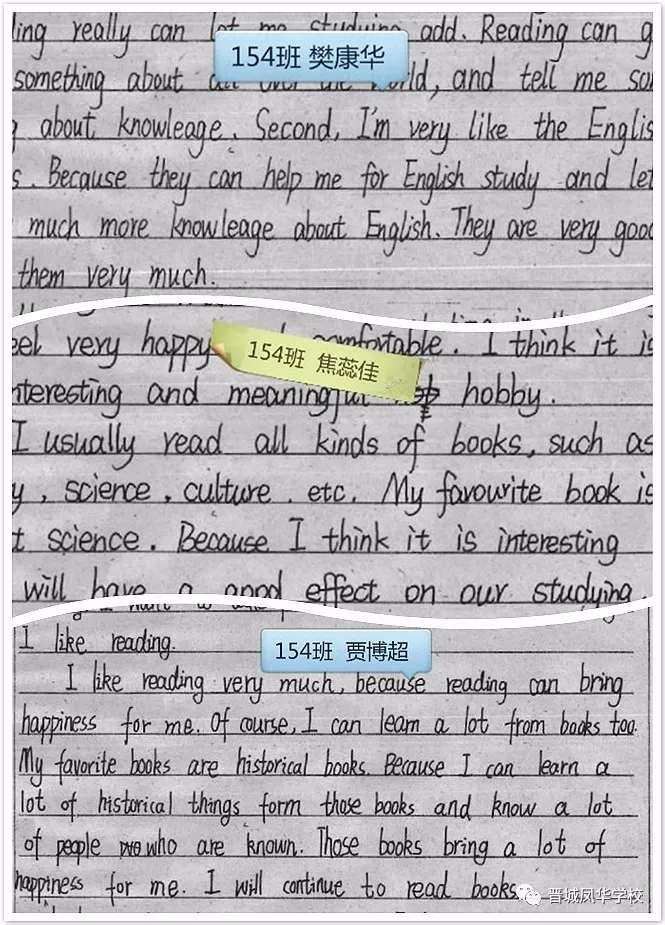 ling really can let me studying add. Reading can g
154班 樊康华
something about all over the world, and tell me so
g about knowleage. Second, I'm very like the Englis
s. Because they can help me for English study and let
much more knowleage about English. They are very good
them very much.
eel very happy and comfortable. I think it is
154班 焦蕊佳
nteresting and meaningful hobby.
I usually read all kinds of books, such as
y, science, culture. etc. My favourite book is
t science. Because I think it is interesting
will have a good effect on our studying.
I like reading.
154班 贾博超
I like reading very much, because reading can bring
happiness for me. Of course, I can learn a lot from books too.
My favorite books are historical books. Because I can learn a
lot of historical things form those books and know a lot
of people who are known. Those books bring a lot of
happiness for me. I will continue to read books.
晋城凤华学校